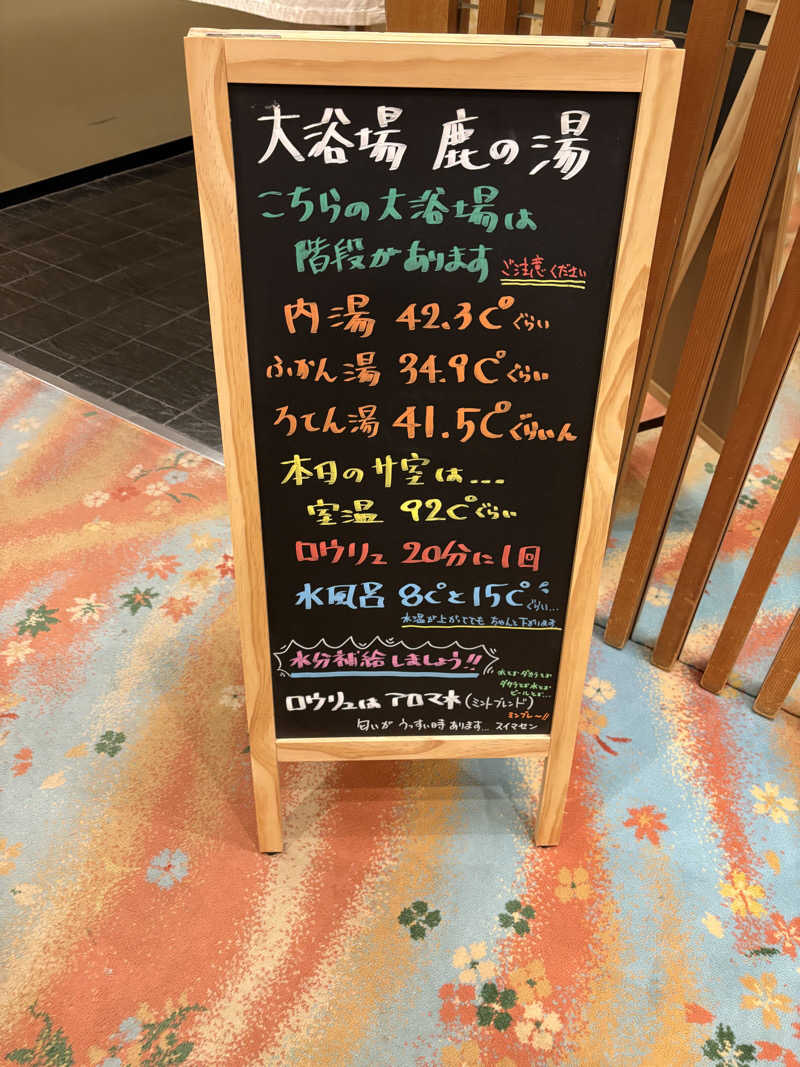 大浴場 鹿の湯
こちらの大浴場は
階段があります ご注意ください
内湯 42.3℃ぐらい
ふかん湯 34.9℃ぐらい
ろてん湯 41.5℃ぐらいん
本日のサ室は...
室温 92℃ぐらい
ロウリュ 20分に1回
水風呂 8℃と15℃ぐらい...
水温が上がってても ちゃんと下がります
水分補給しましょう!!
水とかダカラとか
ダカラとか水とか
ビールとか...
ロウリュはアロマ水(ミントブレンド)
ミンブレ〜!!
匂いがうっすい時あります... スイマセン